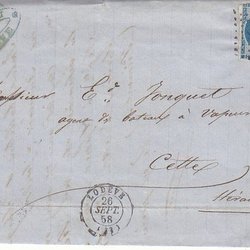 Monsieur Ed. Jonquet
agent de bateaux à vapeur
Cette
Hérau
LODÈVE
26
SEPT.
58